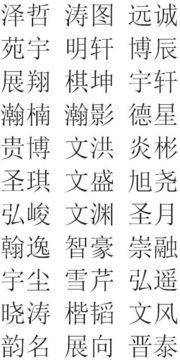 泽哲 涛图 远诚
苑宇 明轩 博辰
展翔 棋坤 宇轩
瀚楠 瀚影 德星
贵博 文洪 炎彬
圣琪 文盛 旭尧
弘峻 文渊 圣月
翰逸 智豪 崇融
宇尘 雪芹 弘遥
晓涛 楷韬 文风
韵名 展向 晋泰